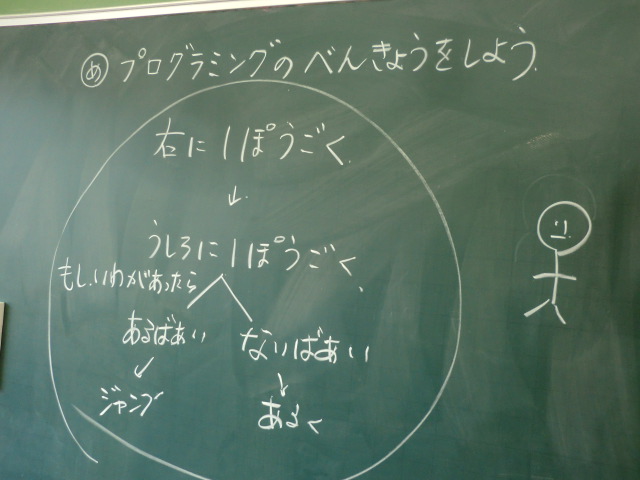 め プログラミングのべんきょうをしよう.
右に1ぽうごく.
↓
うしろに1ぽうごく.
もし、いわがあったら
あるばあい ないばあい
↓ ↓
ジャンプ あるく